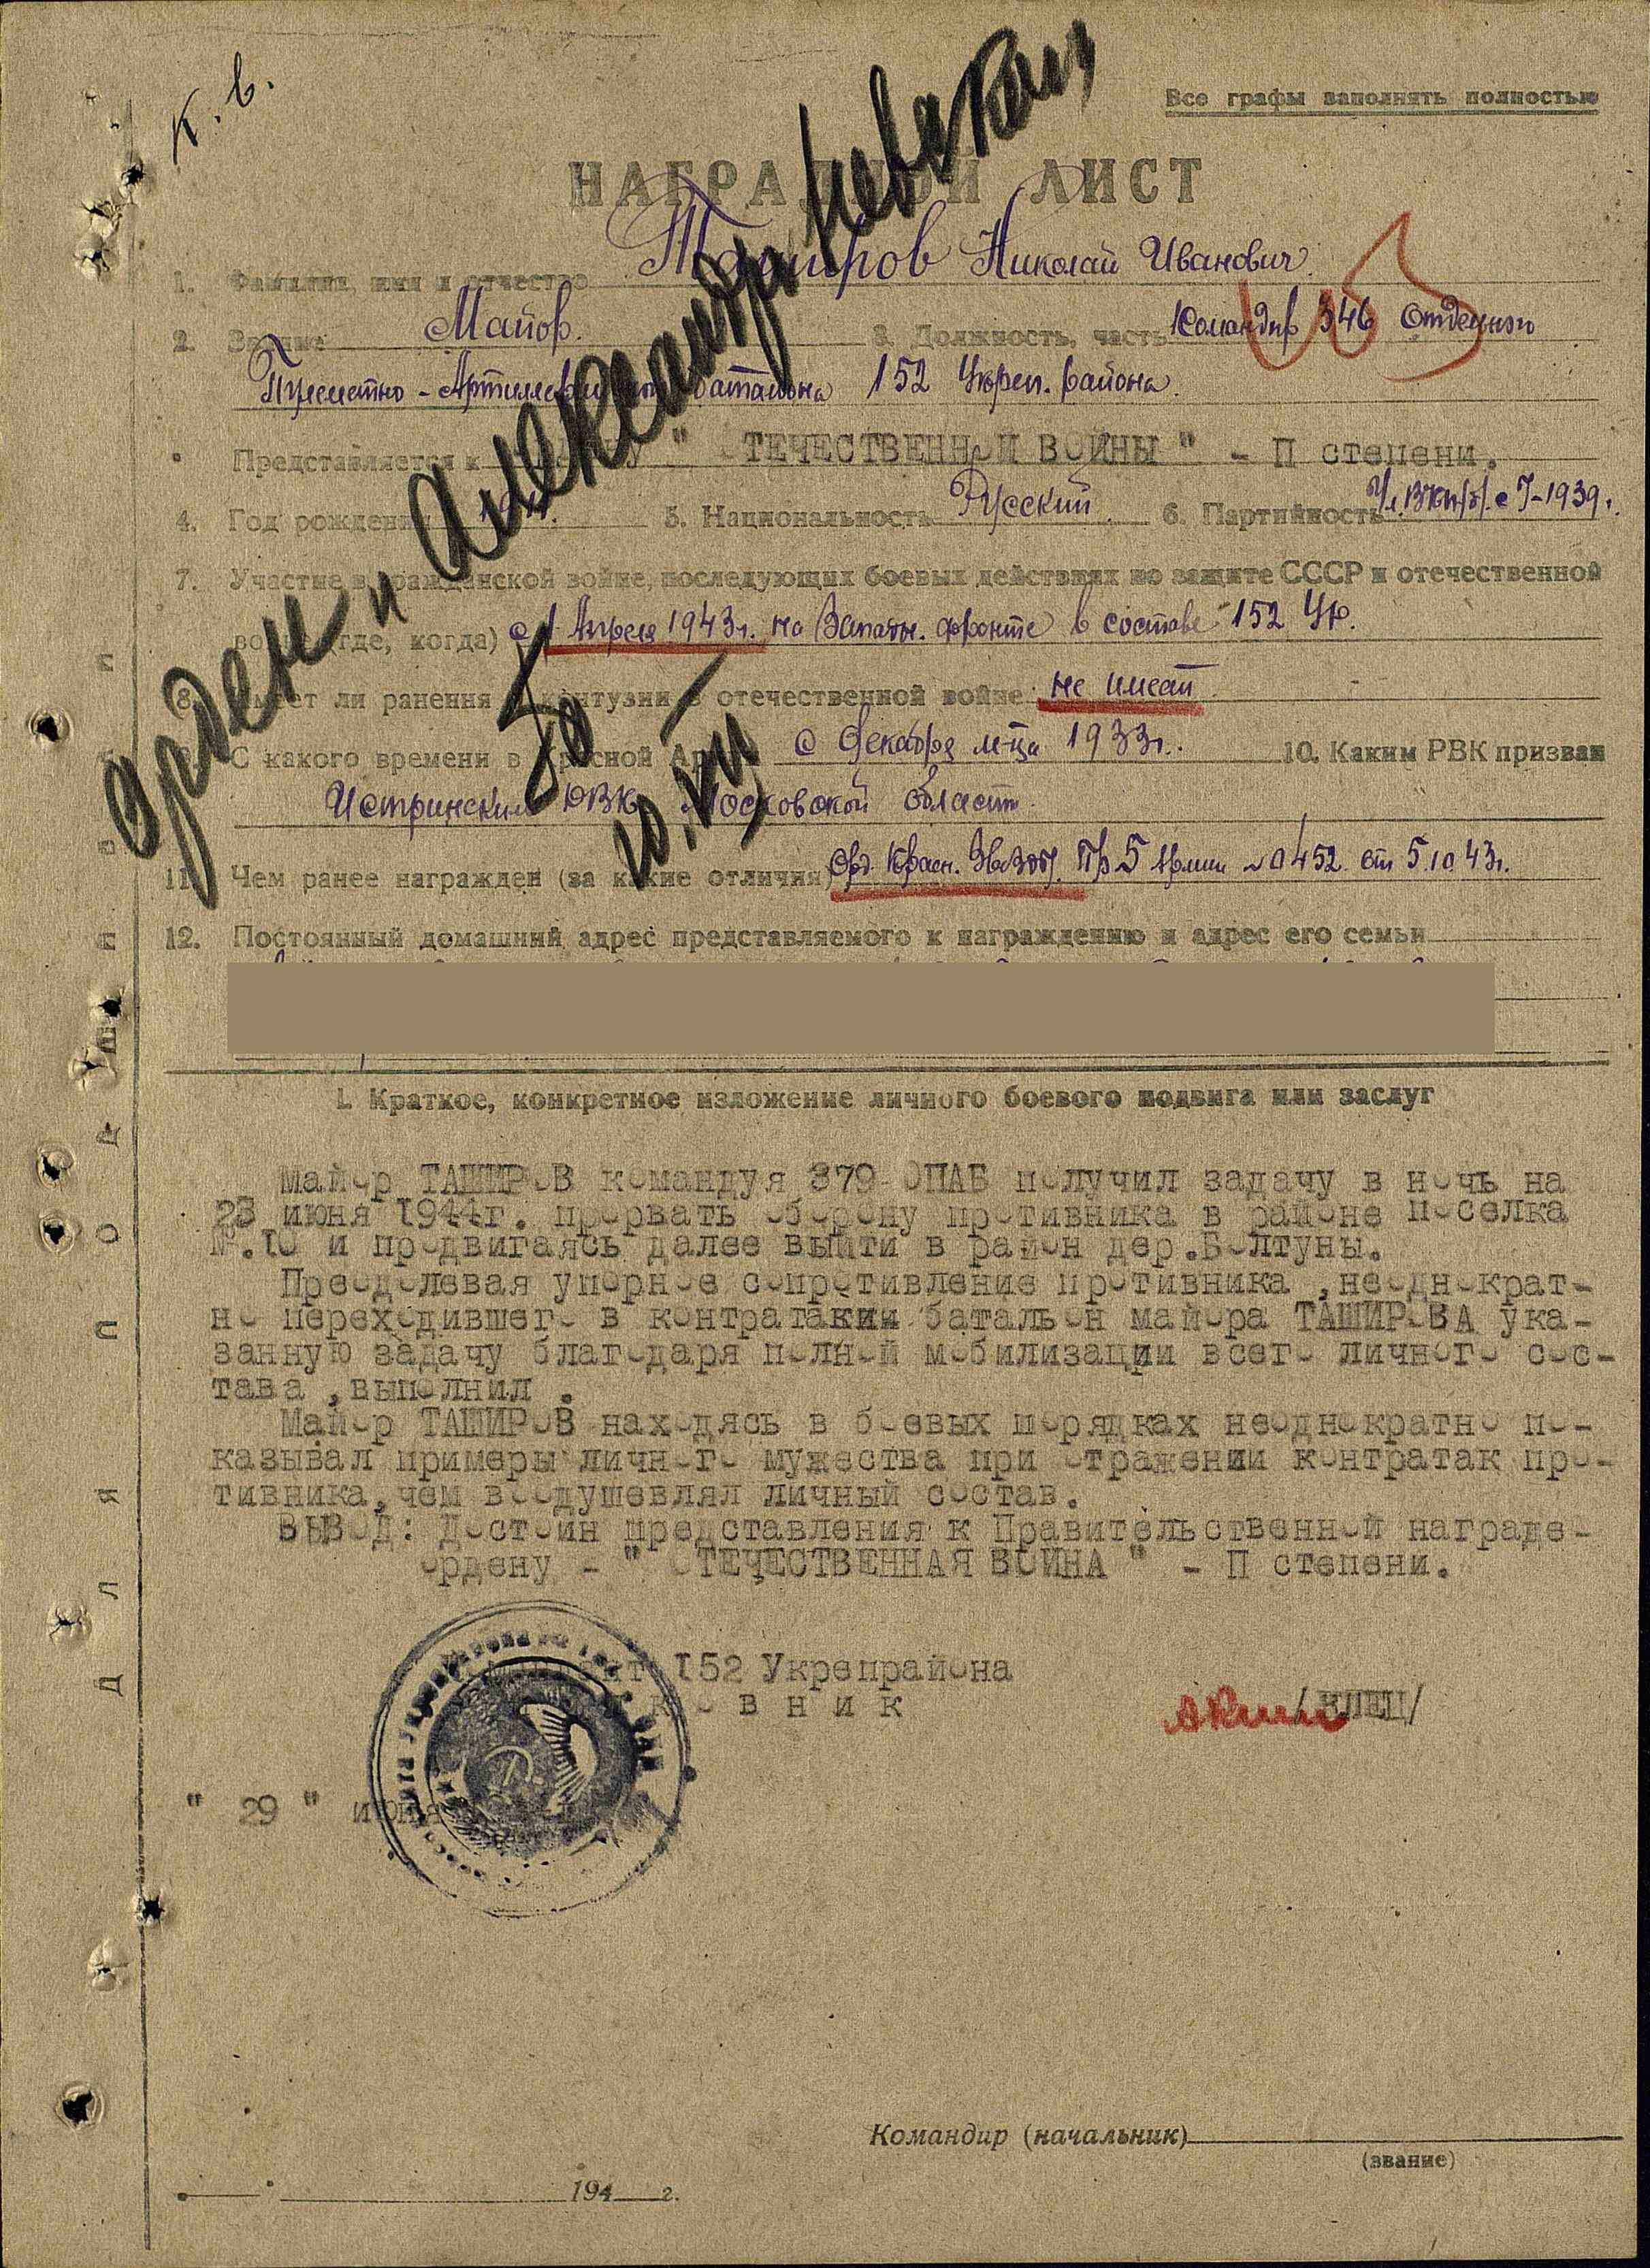 К. В.
Все графы заполнять полностью
НАГРАДНОЙ ЛИСТ
Орден Александр Невский
1. Фамилия, имя и отчество Таширов Николай Иванович.
2. Звание Майор. 3. Должность, часть Командир 346 Отдельного
Пулеметно-Артиллерийского батальона 152 Укреп. района.
Представляется к ордену " ОТЕЧЕСТВЕННОЙ ВОЙНЫ " - II степени.
4. Год рождения 5. Национальность Русский. 6. Партийность Чл. ВКП(б) с 1939г.
7. Участие в гражданской войне, последующих боевых действиях по защите СССР и отечественной
войне (где, когда) с 1 Апреля 1943г. на Западн. фронте в составе 152 Ур.
8. Имеет ли ранения и контузии в отечественной войне не имеет.
9. С какого времени в Красной Армии с декабря м-ца 1933г. 10. Каким РВК призван
Истринским РВК Московской области.
11. Чем ранее награжден (за какие отличия) Орд. Красн. Звезды. Пр 5 Армии № 0452 от 5.10.43г.
12. Постоянный домашний адрес представляемого к награждению и адрес его семьи
I. Краткое, конкретное изложение личного боевого подвига или заслуг
Майор ТАШИРОВ командуя 379 ОПАБ получил задачу в ночь на
23 июня 1944г. прорвать оборону противника в районе поселка
№.10 и продвигаясь далее выйти в район дер.Болтуны.
Преодолевая упорное сопротивление противника ,неоднократ-
но переходившего в контратаки батальон майора ТАШИРОВА ука-
занную задачу благодаря полной мобилизации всего личного сос-
тава ,выполнил .
Майор ТАШИРОВ находясь в боевых порядках неоднократно по-
казывал примеры личного мужества при отражении контратак про-
тивника,чем воодушевлял личный состав.
ВЫВОД: Достоин представления к Правительственной награде-
ордену - " ОТЕЧЕСТВЕННАЯ ВОЙНА " - II степени.
152 Укрепрайона
о в н и к
" 29 " июня
Командир (начальник)
(звание)
194 г.
для подшивки